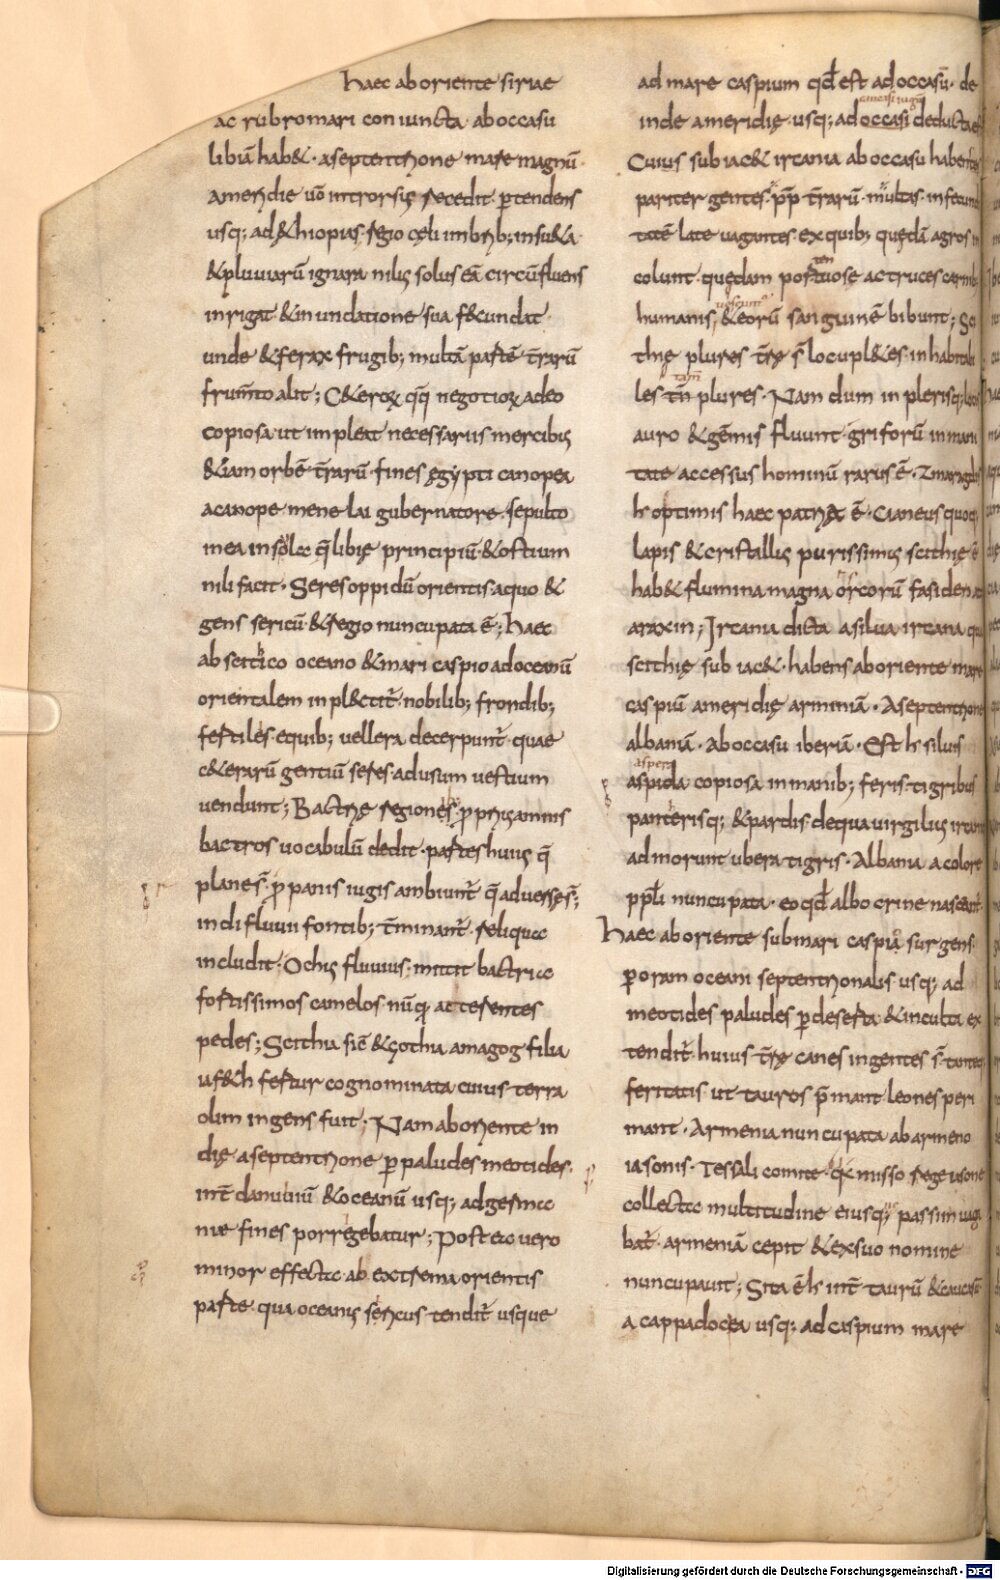 haec ab oriente siriae
ac rubro mari coniuncta ab occasu
libiā hab&. a septentrione mare magnū.
a meridie uō introrsus recedit. ptendens
usq; ad &hiopias regio cęli imbrib; insu&a
& pluuiarū ignara nilus solus eā circūfluens
inrigat & inundatione sua fęcundat
unde & ferax frugib; multā partē trarū
frumto alit; C&eroꝝ qq negotioꝝ adeo
copiosa ut impleat necessariis mercibus
&iam orbē trarū. fines ęgypti canopea
a canope menelai gubernatore. sepulto
in ea insola q libię principiū & ostium
nili facit. Seres oppidū orientis a quo &
gens sericū & regio nuncupata ē; haec
ab scithico oceano & mari caspio ad oceanū
orientalem inpl&tit nobilib; frondib;
fertiles e quib; uellera decerpunt. quae
c&erarū gentiū seres. ad usum uestium
uendunt; Bactrę regiones p prius amnis
bactros uocabulū dedit. partes huius q
plane s p panis iugis ambiunt q aduerse s;
indi fluuii fontib; tminant. reliquae
includit. Ochus fluuius. mittit bactria
fortissimos camelos nūq; atterentes
pedes; Scithia siē & gothia a magog filia
iaf&h fertur cognominata cuius terra
olim ingens fuit; Nam ab oriente in
die a septentrione p paludes meotides.
int danubiū & oceanū usq; ad germa
nie fines porrigebatur; Post ea uero
minor effecta ab extrema orientis
parte. qua oceanus sericus tendit usque
ad mare caspium qd est ad occasū. de
caucasi iugū
inde a meridię. usq; ad occasi deducta ē
Cuius subiac& ircania ab occasu habentes
pariter gentes. pp trarū. multas infecund
tatē late uagantes. ex quib; quędā agros in
colunt quędam portuose ac truces carnib;
humanis, & eorū sanguinē bibunt; Sci
thię plures trę s locupl&es. inhabitabi
tam
les tn plures. Nam dum in plerisq; locis
auro & gēmis fluunt. griforū inmani
tate accessus hominū rarus ē. Zmaragdis
h optimis haec patria ē. Cianeus quoq;
lapis & cristallus purissimus scithię ē
hab& flumina magna orcorū fasiden et
araxin; Ircania dicta a silua ircana que
scithię subiac&. habens ab oriente mare
caspiū a meridię arminiā. A septentrione
albaniā. Ab occasu iberiā. Est h siluis
aspera
aspida copiosa inmanib; feris. tigribus
panterisq; & pardis. de qua uirgilius ircan
admorunt ubera tigris. Albania a colore
ppli nuncupata. eo qd albo crine nascant.
Haec ab oriente sub mari caspio surgens.
p oram oceani septentrionalis usq; ad
meotides paludes p deserta & inculta ex
tendit. huius trę canes ingentes s. tante
feritatis ut tauros pmant leones peri
mant. Armenia nuncupata ab armeno
iasonis. Tessali comite. qi misso rege iasone
collecta multitudine eiusq; passim uaga
bat. armeniā cepit & ex suo nomine
nuncupauit; Sita ē h int taurū & caucasū
a cappadocea usq; ad caspium mare
Digitalisierung gefördert durch die Deutsche Forschungsgemeinschaft - DFG